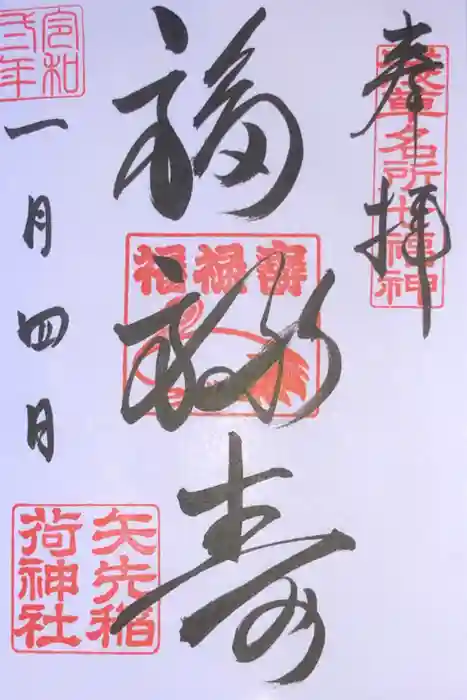 奉拝
浅草名所七福神
福禄寿
福禄寿
令和弐年
一月四日
矢先稲荷神社